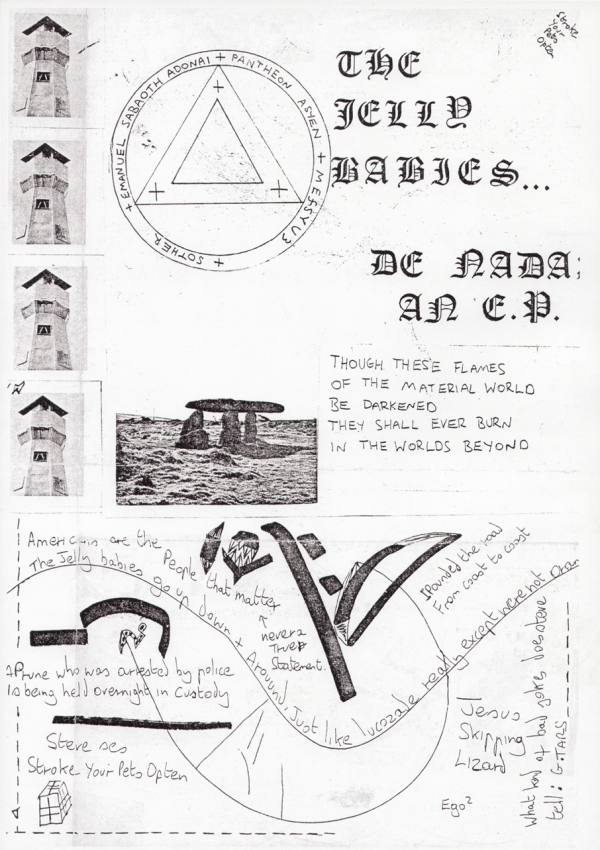 Stroke
Your
Pets
Often
THE
JELLY
BABIES...
DE NADA;
AN E.P.
+ EMANUEL SABAOTH ADONAI + PANTHEON ASYEN + MESSYUS + SOTHER
THOUGH THESE FLAMES
OF THE MATERIAL WORLD
BE DARKENED
THEY SHALL EVER BURN
IN THE WORLDS BEYOND
Americans are the People that matter
↑
never a
Truer
Statement.
The Jelly babies go up down + Around, Just like lucozade really except were not
I Pounded the road
From coast to coast
A Prune who was arrested by police
Is being held overnight in Custody
Steve ses
Stroke Your Pets Often
Jesus
Skipping
Lizard
Ego²
What kind of bad jokes does steve
tell: G.TARS